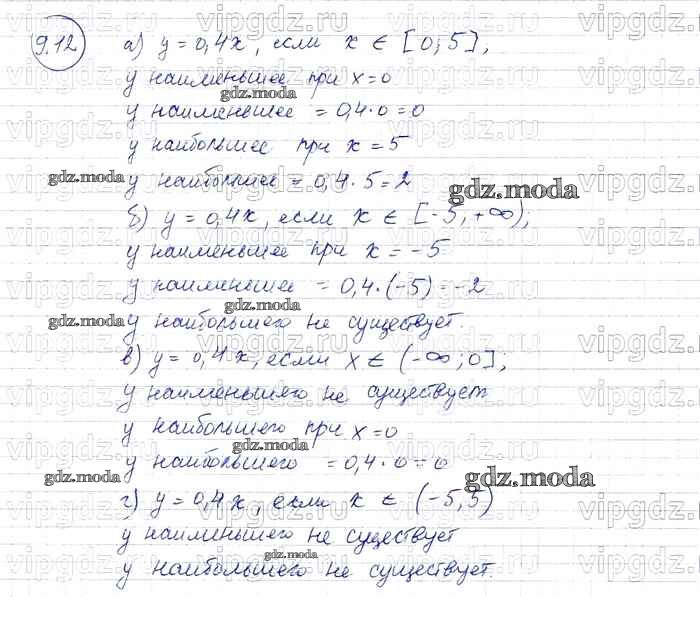 9.12 а) y = 0,4x, если x ∈ [0; 5],
y наименьшее при x = 0
y наименьшее = 0,4·0 = 0
y наибольшее при x = 5
y наибольшее = 0,4·5 = 2
б) y = 0,4x, если x ∈ [-5, +∞);
y наименьшее при x = -5
y наименьшее = 0,4·(-5) = -2
y наибольшего не существует.
в) y = 0,4x, если x ∈ (-∞; 0];
y наименьшего не существует
y наибольшего при x = 0
y наибольшего = 0,4·0 = 0
г) y = 0,4x, если x ∈ (-5, 5)
y наименьшего не существует
y наибольшего не существует.
gdz.moda
gdz.moda
gdz.moda
gdz.moda
gdz.moda
gdz.moda
gdz.moda
gdz.moda
gdz.moda
vipgdz.ru